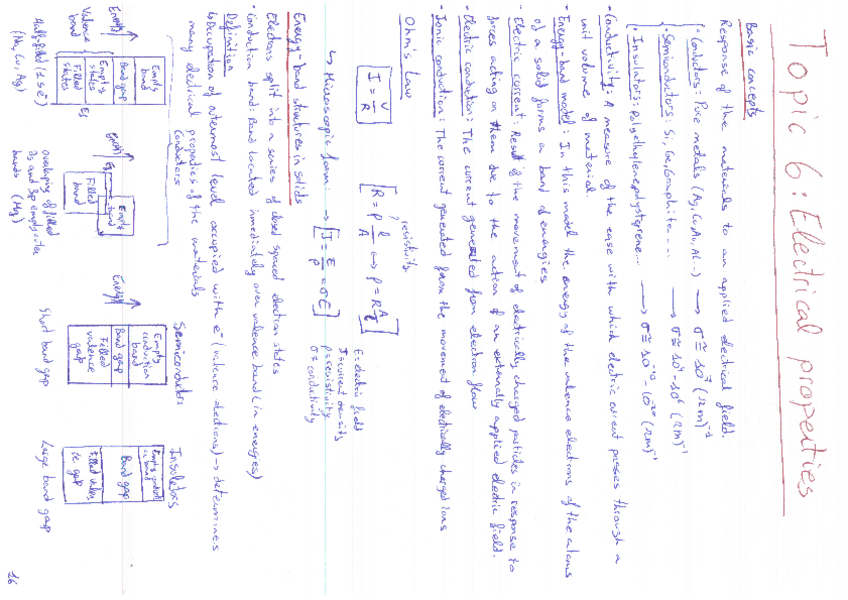 Topic 6: Electrical properties
Basic concepts
Response of the materials to an applied electrical field.
· Conductors: Pure metals (Ag, Cu, Au, Al...) → σ ≅ 10⁷ (Ωm)⁻¹
· Semiconductors: Si, Ge, Graphite... → σ ≅ 10⁴ - 10⁶ (Ωm)⁻¹
· Insulators: Polyethylene, polystyrene... → σ ≅ 10⁻¹⁰ - 10⁻²⁰ (Ωm)⁻¹
· Conductivity: A measure of the ease with which electric current passes through a
unit volume of material.
· Energy-band model: In this model the energy of the valence electrons of the atoms
of a solid forms a band of energies
· Electric current: Result of the movement of electrically charged particles in response to
forces acting on them due to the action of an externally applied electric field.
· Electric conduction: The current generated from electron flow
· Ionic conduction: The current generated form the movement of electrically charged ions
Ohm's Law
I = V/R
resistivity
R = ρ l/A ⇔ ρ = R A/l
E: electric field
↳ Microscopic form: → J = E/ρ = σE
J = current density
ρ = resistivity
σ = conductivity
Energy-band structures in solids
Electrons split into a series of closed spaced electron states
· Conduction band: Band located inmediately over valence band (in energies)
Definition
↳ Occupation of outermost level occupied with e⁻ (valence electrons) → determines
many electrical properties of the materials
Conductors
Semiconductors
Insulators
Energy
Valence
band
Empty
band
Band gap
Empty
states
Filled
states
Ef
Half filled (1 s e⁻)
(Na, Cu, Ag)
Energy
Ef
Empty
band
Filled
band
overlaping of filled
3s and 3p empty outer
bands (Mg)
Energy
Empty
conduction
band
Band gap
Filled
valence
gap
Short band gap
Band gap
Large band gap
16